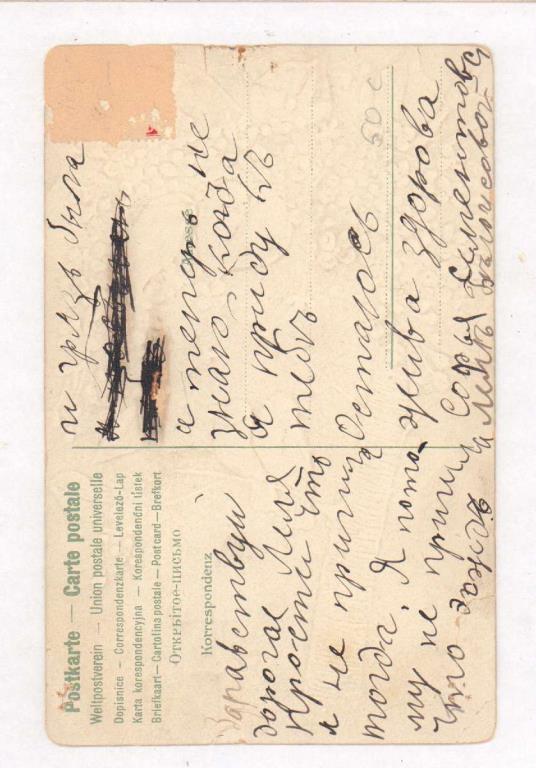 Postkarte — Carte postale
Weltpostverein — Union postale universelle
Dopisnice — Correspondenzkarte — Levelező-Lap
Karta korespondencyjna — Korespondenční lístek
Briefkaart — Cartolina postale — Post card — Brefkort
Открытое-письмо
Korrespondenz
Здравствуй
дорогая Лиля
Прости что
я не пришла
тогда. Я пото-
му не пришла
что
и грязь была
а теперь не
знаю когда
я приду къ
тебѣ
Осталось
жива здорова
Софья
50 c